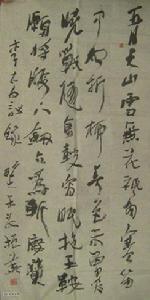 五月天山雪無花祇有寒笛
中聞折柳春色未曾看
曉戰隨金鼓宵眠抱玉鞍
願將腰下劍直為斬樓蘭
李太白詩錄